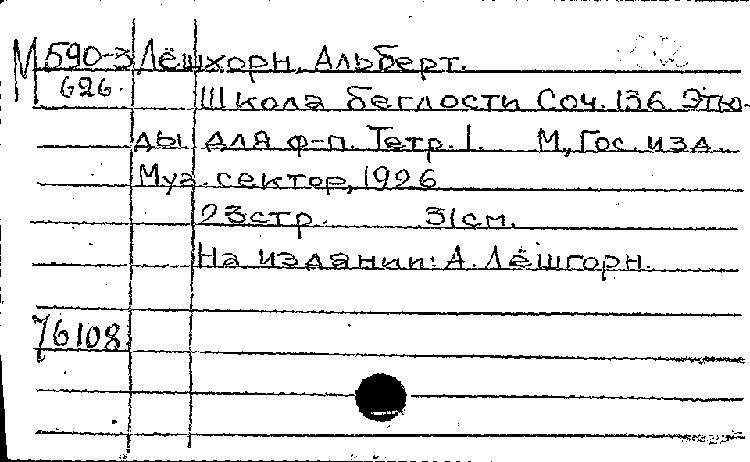 М 590-3 Лёшхорн, Альберт.
626.
Школа беглости Соч. 136 Этю-
ды для ф-п. Тетр. 1. М, Гос. изд.
Муз. сектор, 1926
23 стр. 31 см.
На издании: А. Лёшгорн.
76108